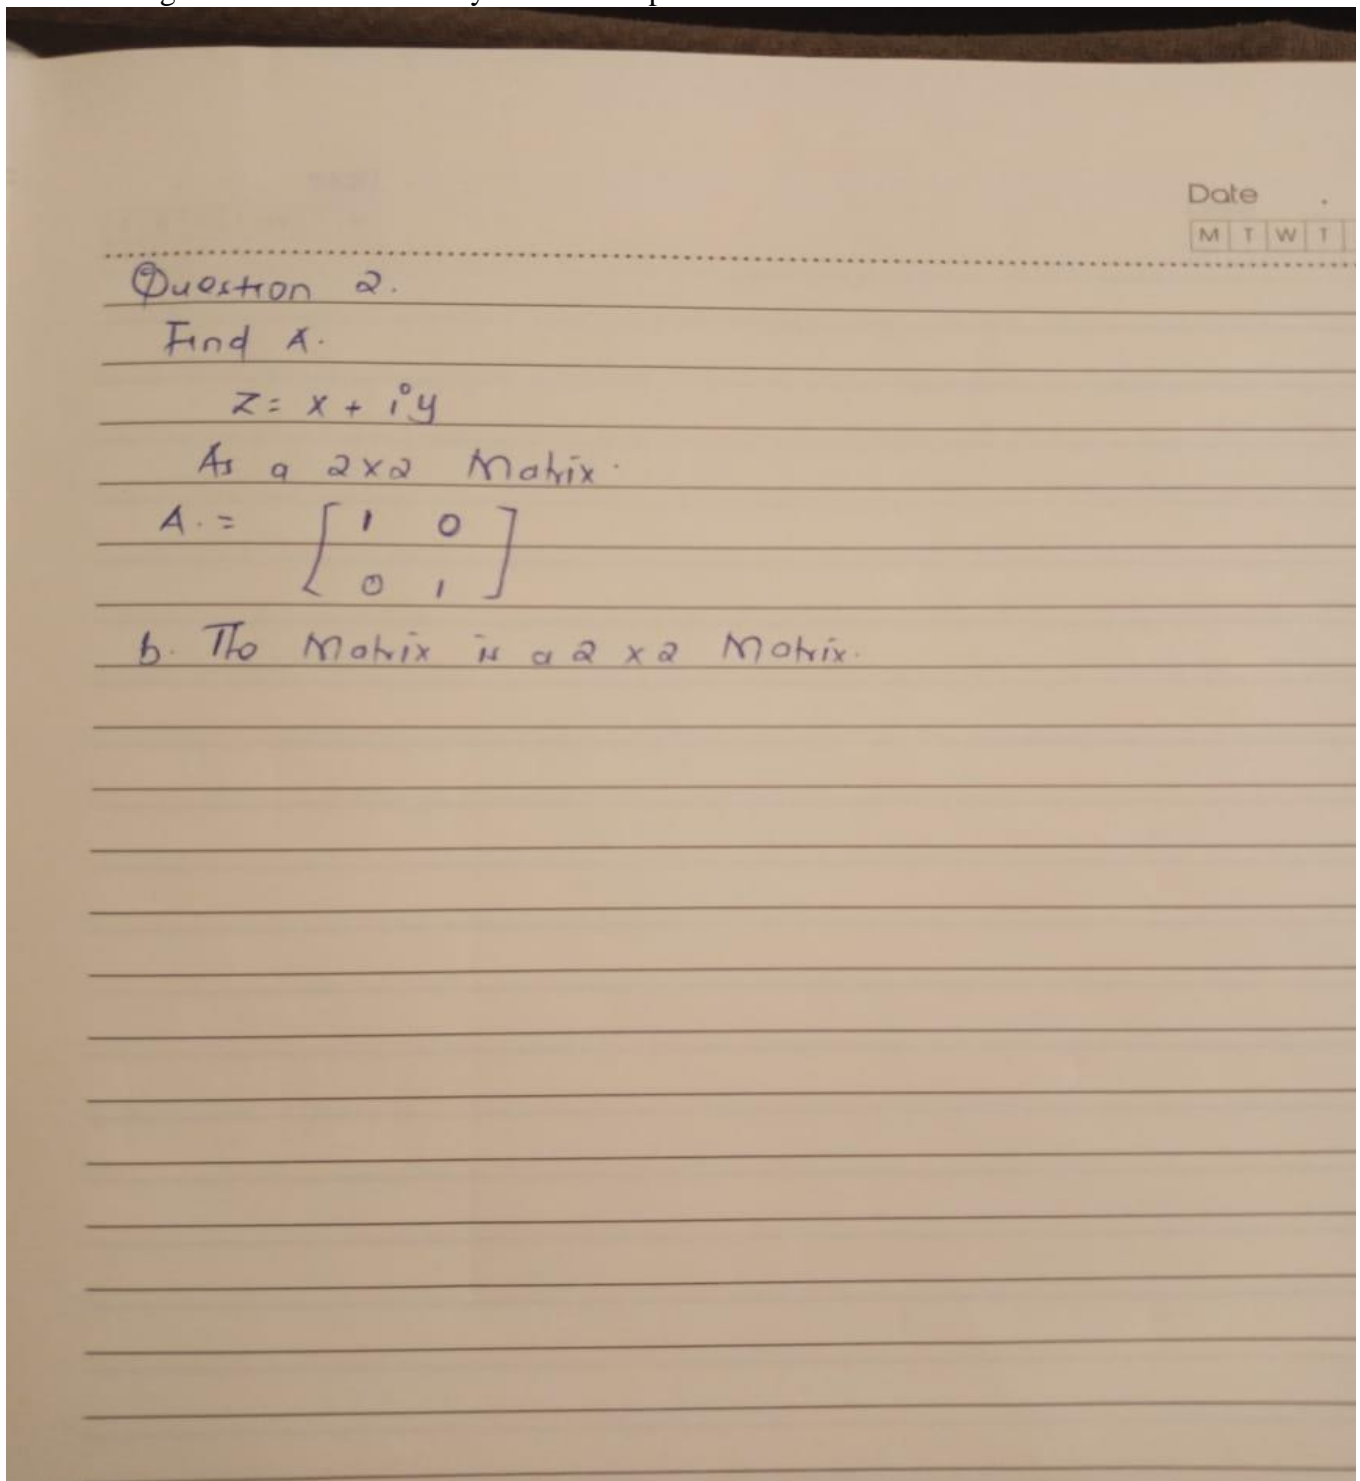 Date .
M T W T
Question 2.
Find A.
Z = x + iy
As a 2x2 Matrix.
A. = [ 1 0
0 1 ]
b. The Matrix is a 2 x 2 Matrix.